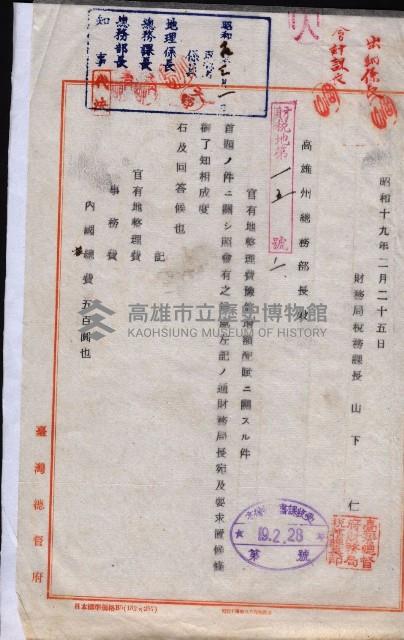 出納係長
會計課長
昭和
地理係長
總務課長
總務部長
知事
財税地第一五號ノ一
昭和十九年二月二十五日
財務局税務課長 山下 仁
高雄州總務部長殿
官有地整理費豫算増額配賦ニ關スル件
首題ノ件ニ關シ照會有之候處左記ノ通財務局長宛及要求置候條
御了知相成度
右及回答候也
記
官有地整理費
事務費
内國旅費 五百圓也
臺灣總督府
臺灣總督府財務局税務課印
19.2.28
第 號
高雄市立歷史博物館
KAOHSIUNG MUSEUM OF HISTORY
日本標準規格B5(182×257)